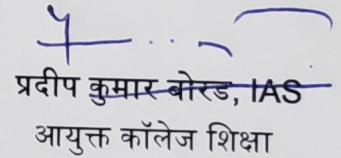 प्रदीप कुमार बोरड, IAS
आयुक्त कॉलेज शिक्षा